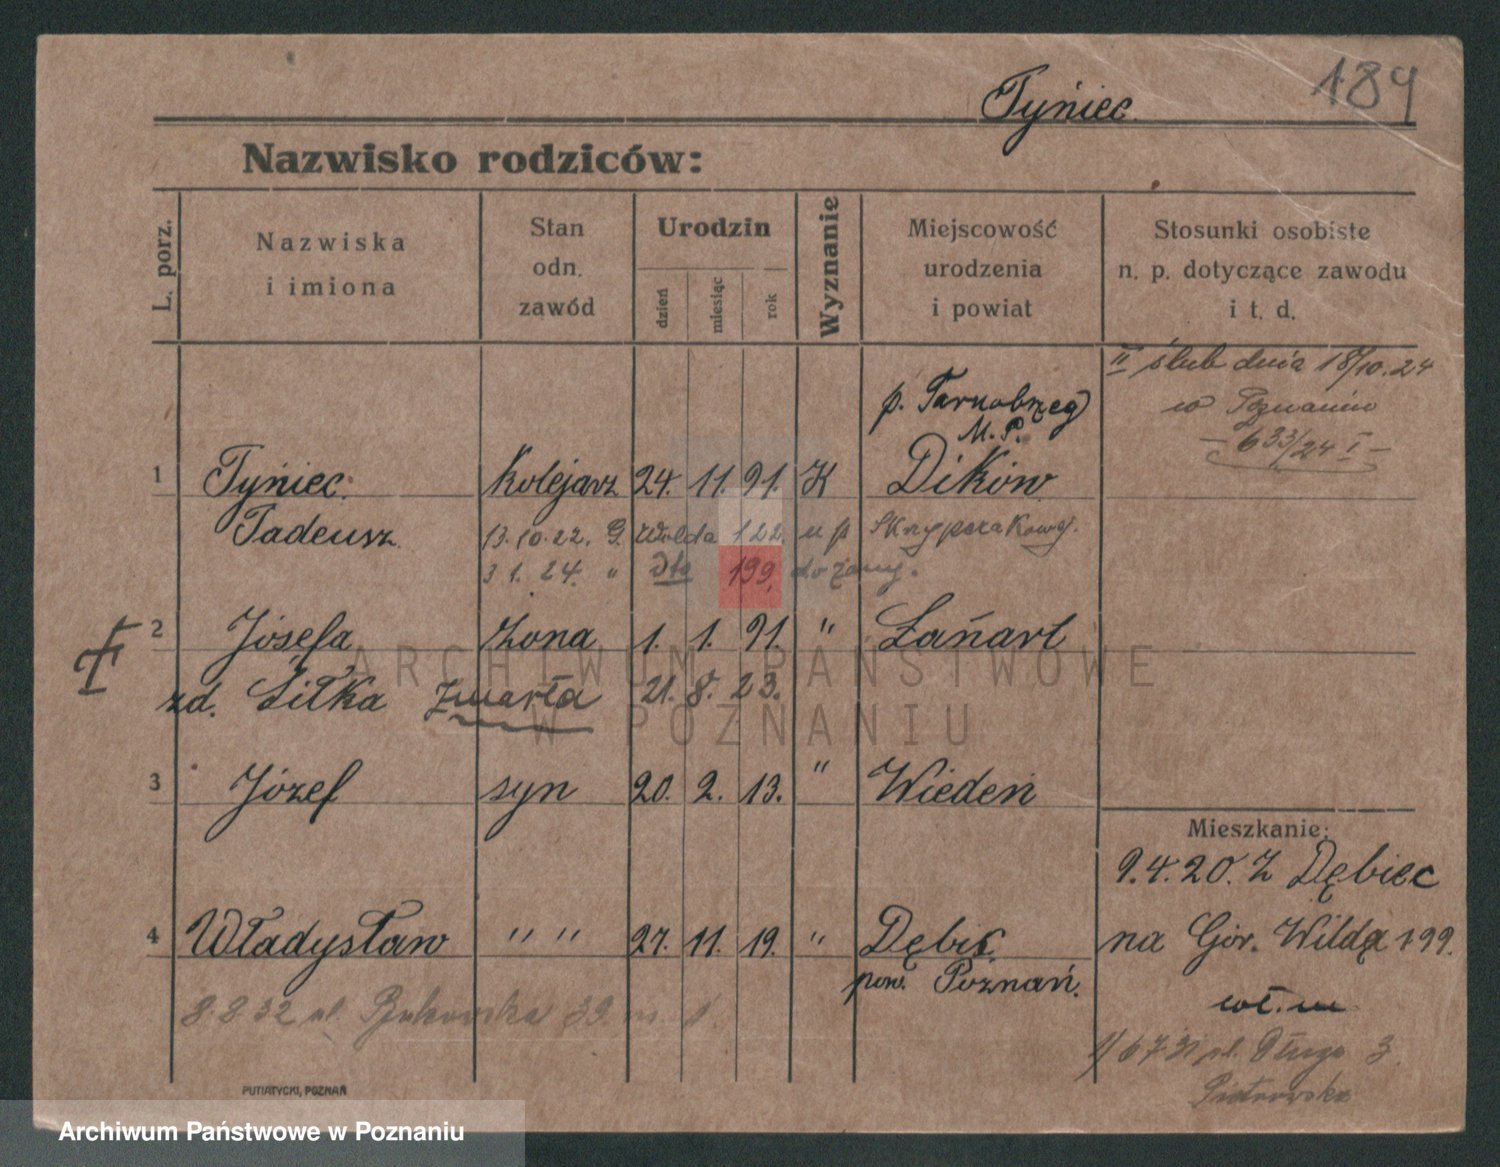 Tyńiec
189
Nazwisko rodziców:
L. porz.
Nazwiska
i imiona
Stan
odn.
zawód
Urodzin
dzień
miesiąc
rok
Wyznanie
Miejscowość
urodzenia
i powiat
Stosunki osobiste
n. p. dotyczące zawodu
i t. d.
II ślub dnia 18/10.24
w Poznaniu
— 633/24 I —
p. Tarnobrzeg
M. P.
1 Tyńiec Kolejarz 24. 11. 91. K Dików
Tadeusz
13.10.22. G. Wilda 122. u p Skrypczakowej.
3 1. 24. " Dto 199, do żony.
2 Józefa żona 1. 1. 91. " Łańart
zd. Ziłka zmarła 21. 8. 23.
3 Józef syn 20. 2. 13. " Wiedeń
Mieszkanie:
9.4.20. Z Dębiec
4 Władysław " " 27. 11. 19. " Dębiec
na Gór. Wildę 199.
pow. Poznań.
wł. m
8.8 32 ul. Bukowska 39 m. 1
6 7.31 pl. Długa 3
Piotrowska
PUTIATYCKI, POZNAŃ
ARCHIWUM PAŃSTWOWE
W POZNANIU
Archiwum Państwowe w Poznaniu